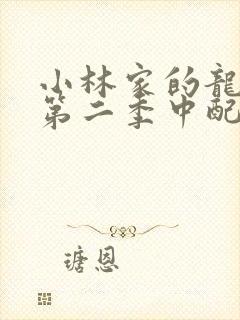 小林家的龍
第二季中配
瑭恩